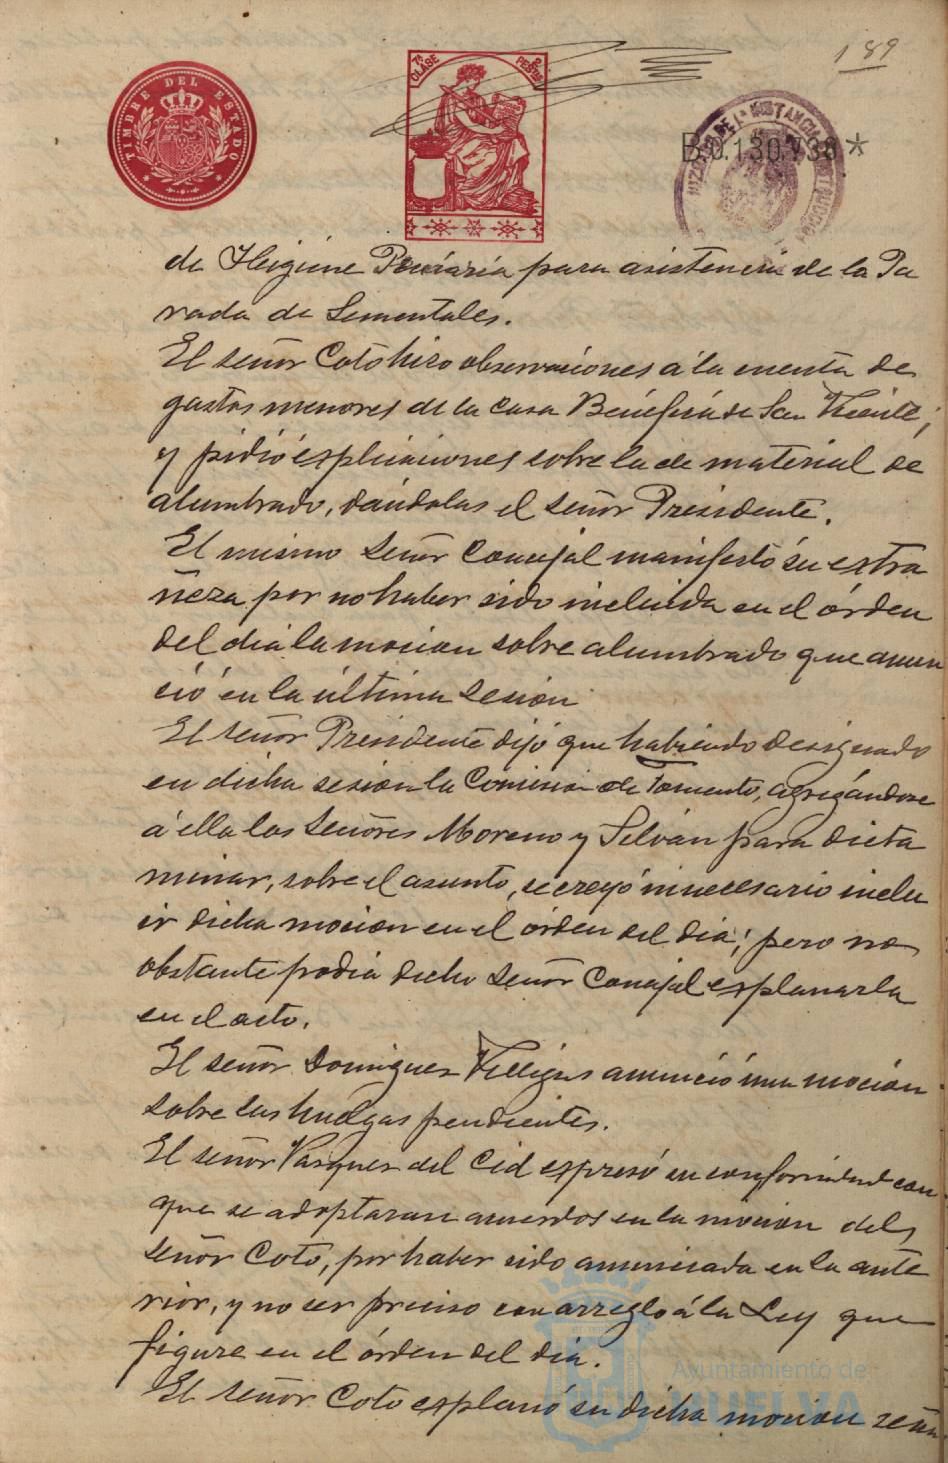 189
TIMBRE DEL ESTADO
7ª CLASE
PESTAS
B.0.130.738*
JUZGADO DE 1ª INSTANCIA
de Higiene Pecuaria para asistencia de la Pa
rada de Sementales.
El señor Coto hizo observaciones á la cuenta de
gastos menores de la casa Benéfica de San Vicente,
y pidió esplicaciones sobre la de material de
alumbrado, dándolas el señor Presidente.
El mismo Señor Concejal manifestó su estra
ñeza por no haber sido incluida en el órden
del dia la mocion sobre alumbrado que anun
ció en la última sesión
El señor Presidente dijo que habiendo designado
en dicha sesion la Comision de Fomento, agregándose
á ella los Señores Moreno y Selván para dicta
minar, sobre el asunto, se creyó innecesario inclu
ir dicha mocion en el órden del dia; pero no
obstante podia dicho Señor Concejal esplanarla
en el acto.
El señor Dominguez Villegas anunció una mocion
sobre las huelgas pendientes.
El señor Vazquez del Cid espresó su conformidad con
que se adoptaran acuerdos en la mocion del
señor Coto, por haber sido anunciada en la ante
rior, y no ser preciso con arreglo á la Ley que
figure en el órden del dia.
El señor Coto esplanó su dicha mocion seña
Ayuntamiento de
HUELVA